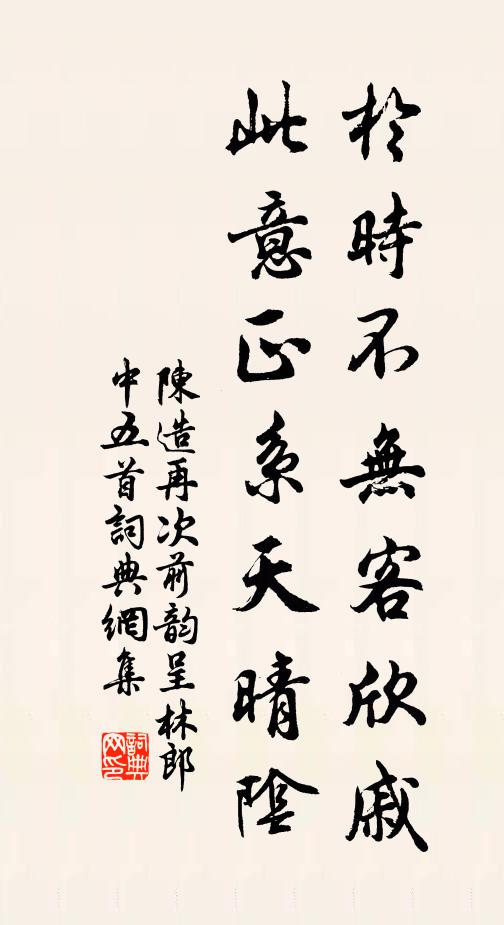 於時不無客欣戚
此意正系天晴陰
陳造再次前韵呈林郎
中五首詞典網集
詞典
网印